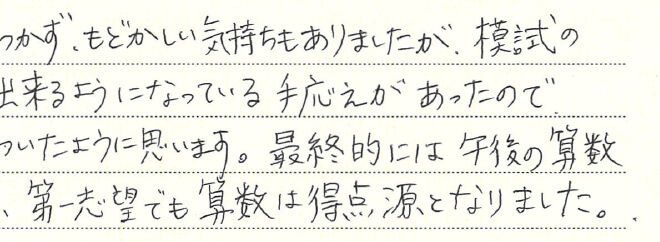 つかず、もどかしい気持ちもありましたが、模試の
出来るようになっている手応えがあったので
ついたように思います。最終的には午後の算数
、第一志望でも算数は得点源となりました。